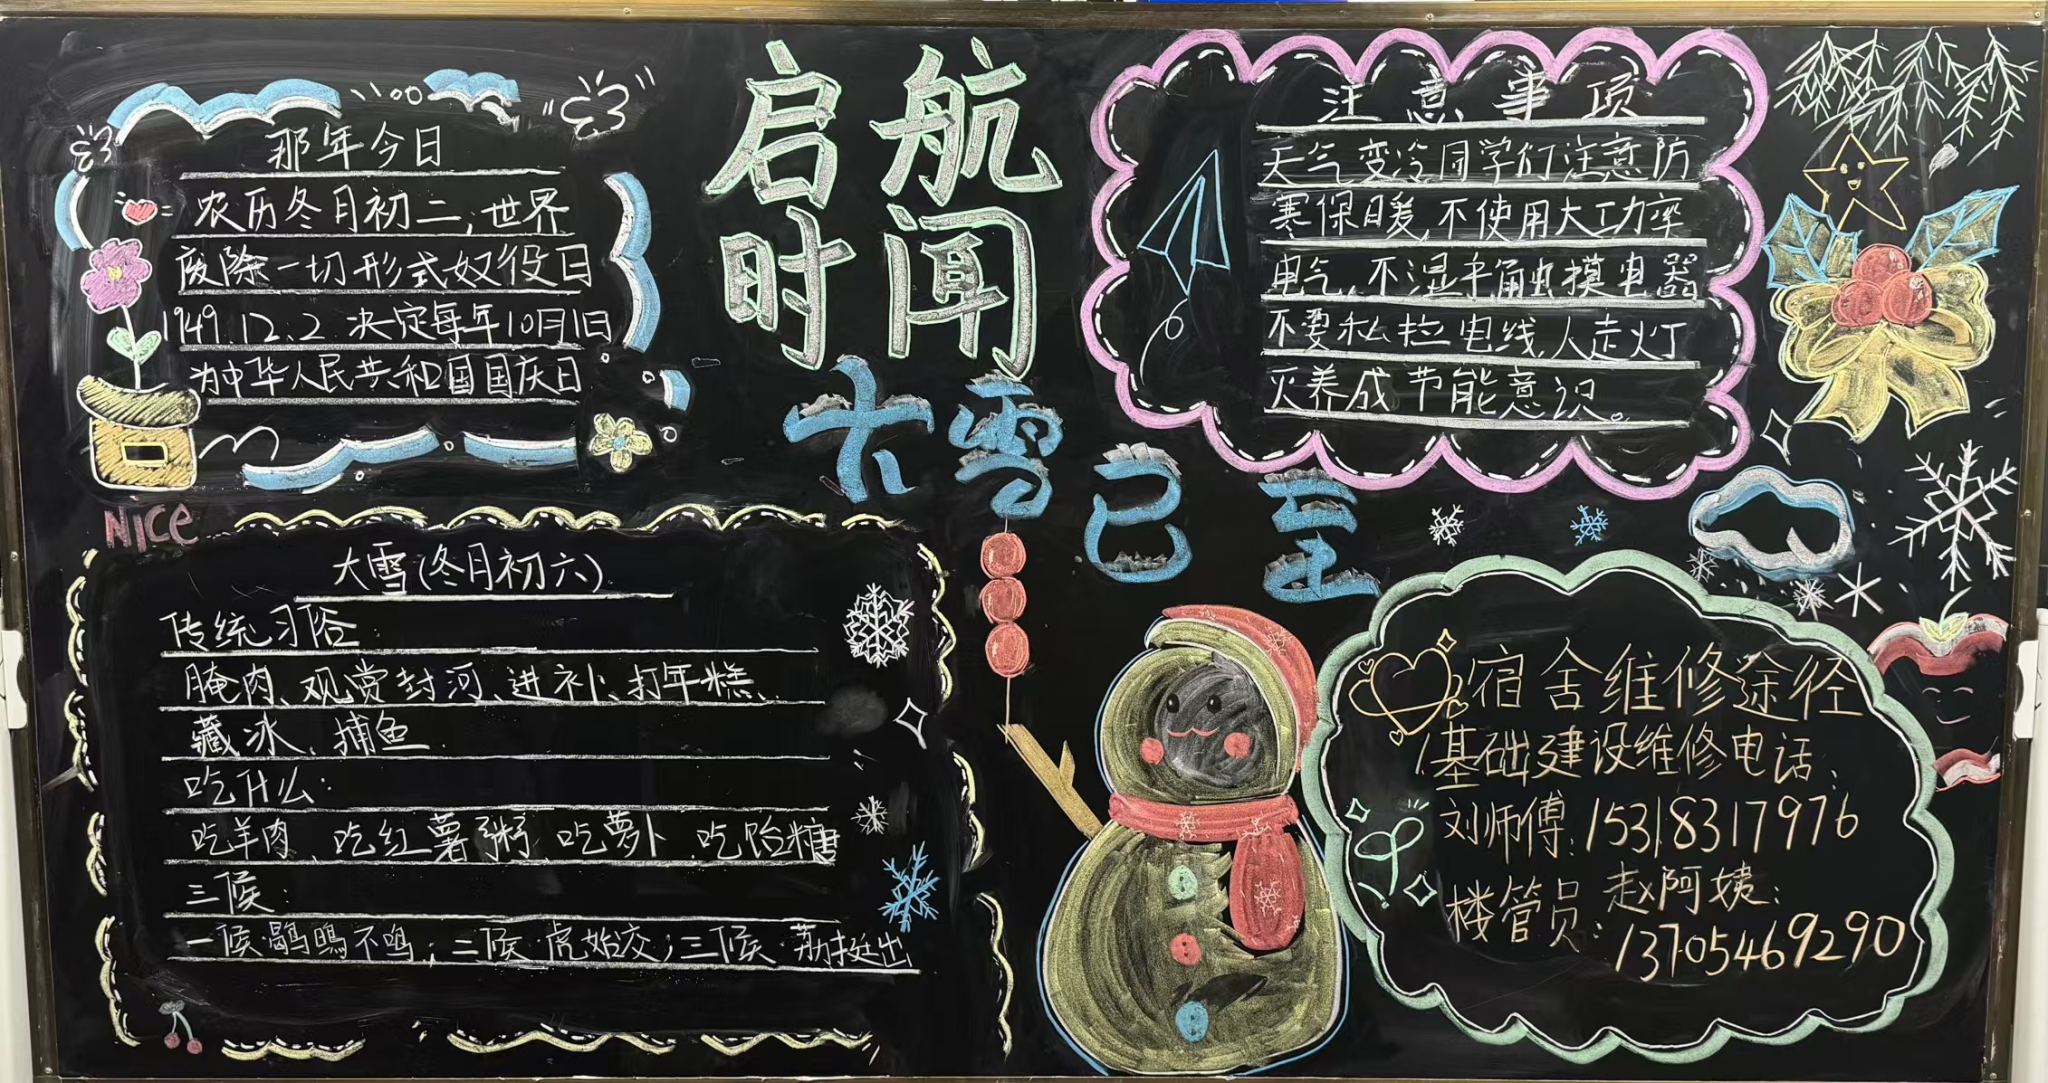 那年今日
农历冬月初二,世界
废除一切形式奴役日
1949.12.2 决定每年10月1日
为中华人民共和国国庆日
NICE
启航
时闻
大雪已至
注意事项
天气变冷同学们注意防
寒保暖,不使用大功率
电气,不湿手触摸电器
不要私拉电线,人走灯
灭养成节能意识。
大雪(冬月初六)
传统习俗:
腌肉、观赏封河、进补、打年糕、
藏冰、捕鱼.
吃什么:
吃羊肉、吃红薯粥、吃萝卜、吃饴糖
三候:
一候·鹖鴠不鸣;二候·虎始交;三候·荔挺出
宿舍维修途径
基础建设维修电话:
刘师傅:15318317976
楼管员:赵阿姨:
13705469290